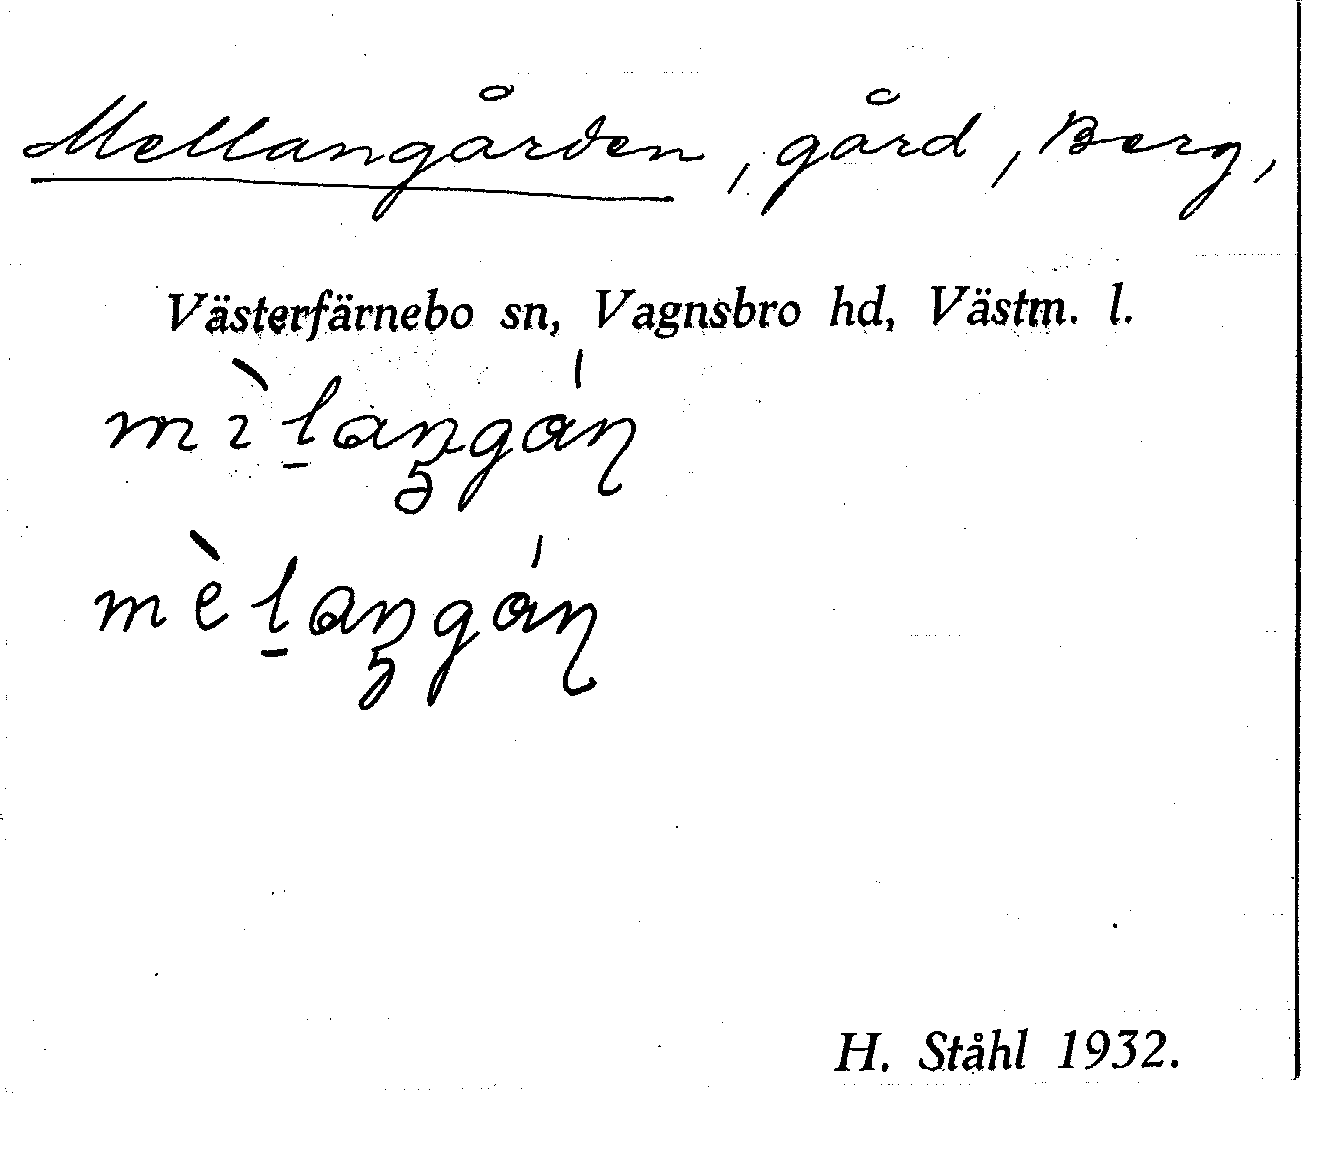 Mellangården, gård, Berg,
Västerfärnebo sn, Vagnsbro hd, Västm. l.
H. Ståhl 1932.